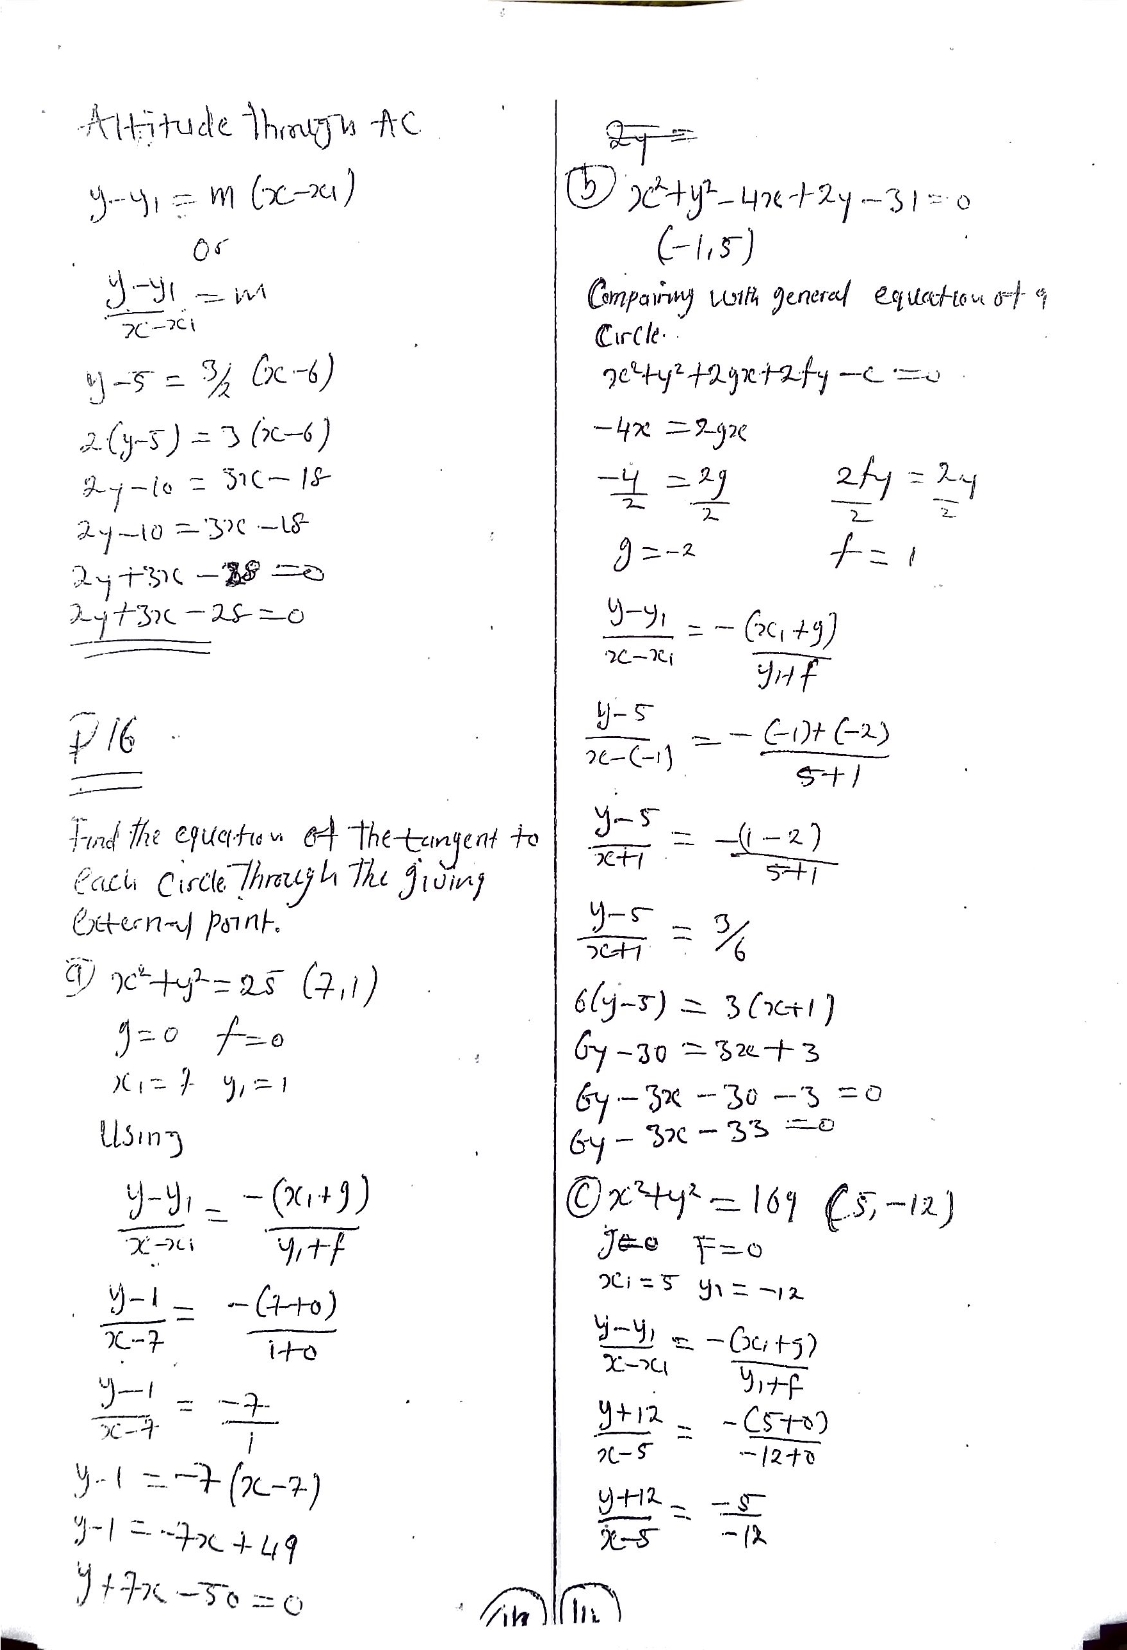 Altitude Through AC
y-y₁ = m (x-x₁)
or
y-y₁/x-x₁ = m
y-5 = 3/2 (x-6)
2(y-5) = 3(x-6)
2y-10 = 3x-18
2y-10 = 3x-18
2y+3x-28=0
2y+3x-28=0
P16
Find the equation of the tangent to
each circle Through the giving
External point.
a) x²+y²=25 (7,1)
g=0 f=0
x₁=7 y₁=1
Using
y-y₁/x-x₁ = -(x₁+g)/y₁+f
y-1/x-7 = -(7+0)/1+0
y-1/x-7 = -7/1
y-1 = -7(x-7)
y-1 = -7x+49
y+7x-50=0
2y=
(b) x²+y²-4x+2y-31=0
(-1,5)
Comparing with general equation of a
Circle.
x²+y²+2gx+2fy-c=0
-4x = 2gx
-4/2 = 2g/2 2fy/2 = 2y/2
g=-2 f=1
y-y₁/x-x₁ = -(x₁+g)/y₁+f
y-5/x-(-1) = -(-1)+(-2)/5+1
y-5/x+1 = -(1-2)/5+1
y-5/x+1 = 3/6
6(y-5) = 3(x+1)
6y-30 = 3x+3
6y-3x-30-3=0
6y-3x-33=0
(C) x²+y²=169 (5,-12)
g=0 F=0
x₁=5 y₁=-12
y-y₁/x-x₁ = -(x₁+g)/y₁+f
y+12/x-5 = -(5+0)/-12+0
y+12/x-5 = -5/-12